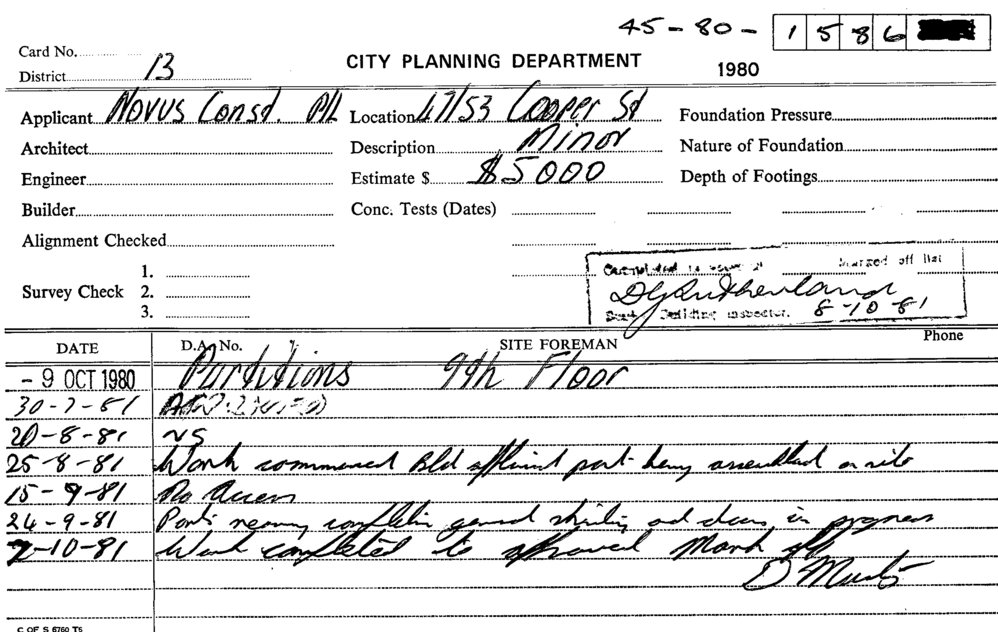 45-80- 1586
Card No.
District 13
CITY PLANNING DEPARTMENT
1980
Applicant Novus Const. P/L Location 47/53 Cooper St Foundation Pressure
Architect Description Minor Nature of Foundation
Engineer Estimate $ $5000 Depth of Footings
Builder Conc. Tests (Dates)
Alignment Checked
Survey Check 1.
2.
3.
Marked off list
DG Rutherland
Building Inspector. 8-10-81
DATE D.A. No. SITE FOREMAN Phone
-9 OCT 1980 Partitions 9th Floor
30-7-81
20-8-81 NS
25-8-81 Work commenced Bld part being assembled on site
15-9-81 No Access
24-9-81 Part's nearing completion general and doors in progress
2-10-81 Work completed to approved Mark off
C OF S 6760 T5